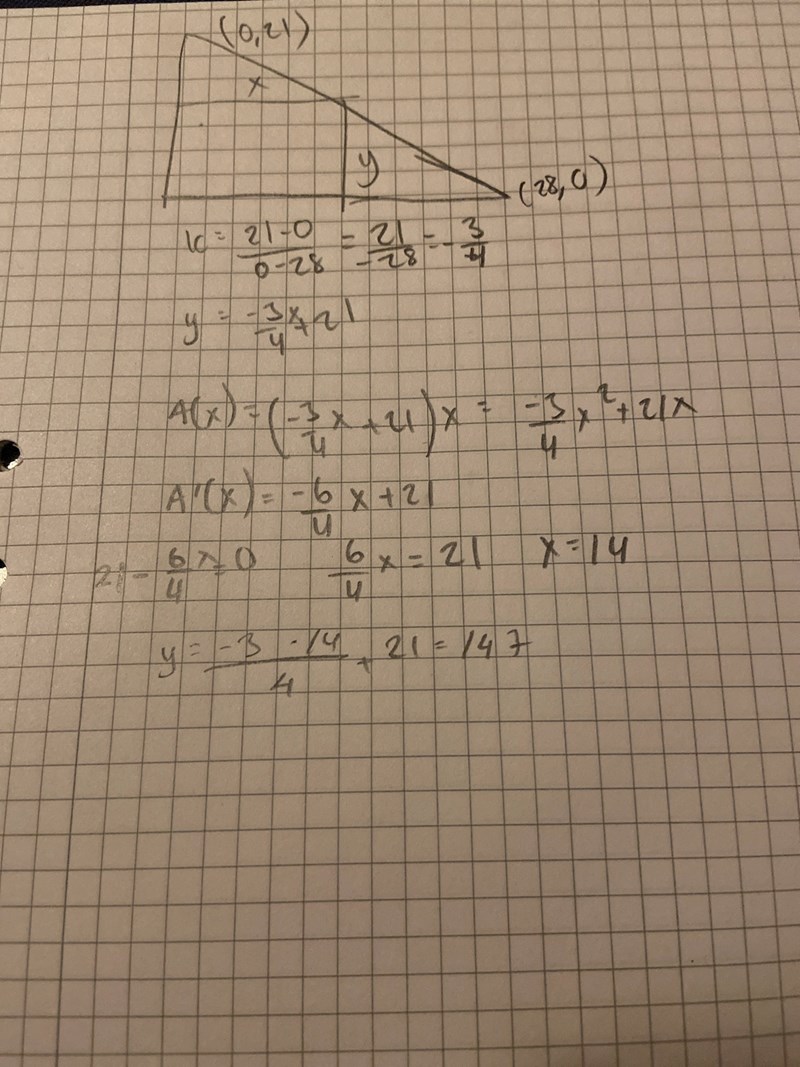 (0,21)
x
y
(28,0)
k = \frac{21-0}{0-28} = \frac{21}{-28} = -\frac{3}{4}
y = \frac{-3}{4}x+21
A(x) = (\frac{-3}{4}x+21)x = \frac{-3}{4}x²+21x
A'(x) = \frac{-6}{4}x+21
21-\frac{6}{4}x=0 \frac{6}{4}x=21 x=14
y = \frac{-3 \cdot 14}{4} + 21 = 147